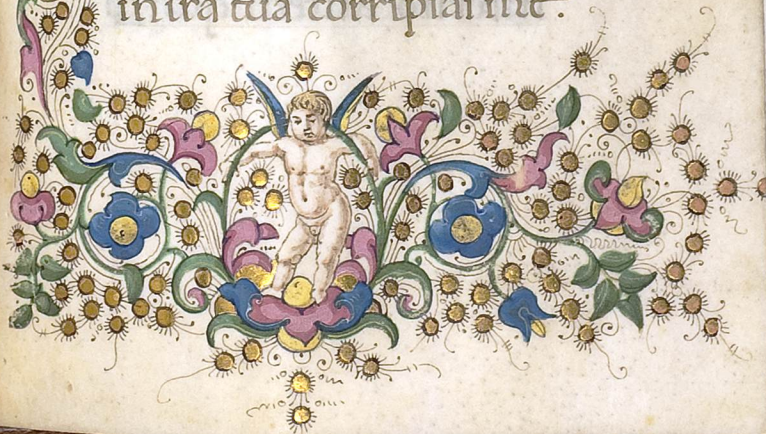 in ira tua corripias me.